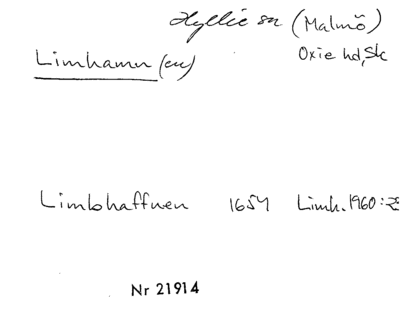 Hyllie sn (Malmö)
Oxie hd, Sk
Limhamn (en)
Limbhaffnen 1654 Limh. 1960:
Nr 21914